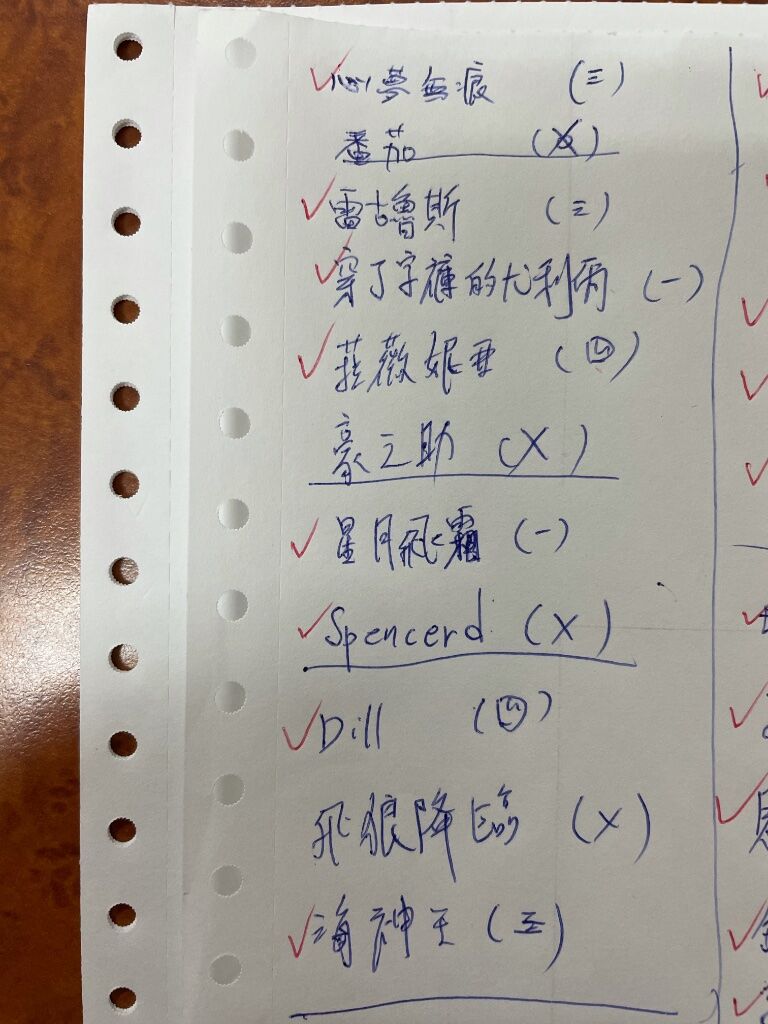 心夢無痕 (三)
番茄 (X)
雷古魯斯 (三)
穿丁字褲的尤利爾 (一)
菈薇妮亞 (四)
豪之助 (X)
星月飛霜 (一)
Spencerd (X)
Dill (四)
飛狼降臨 (X)
海神王 (三)